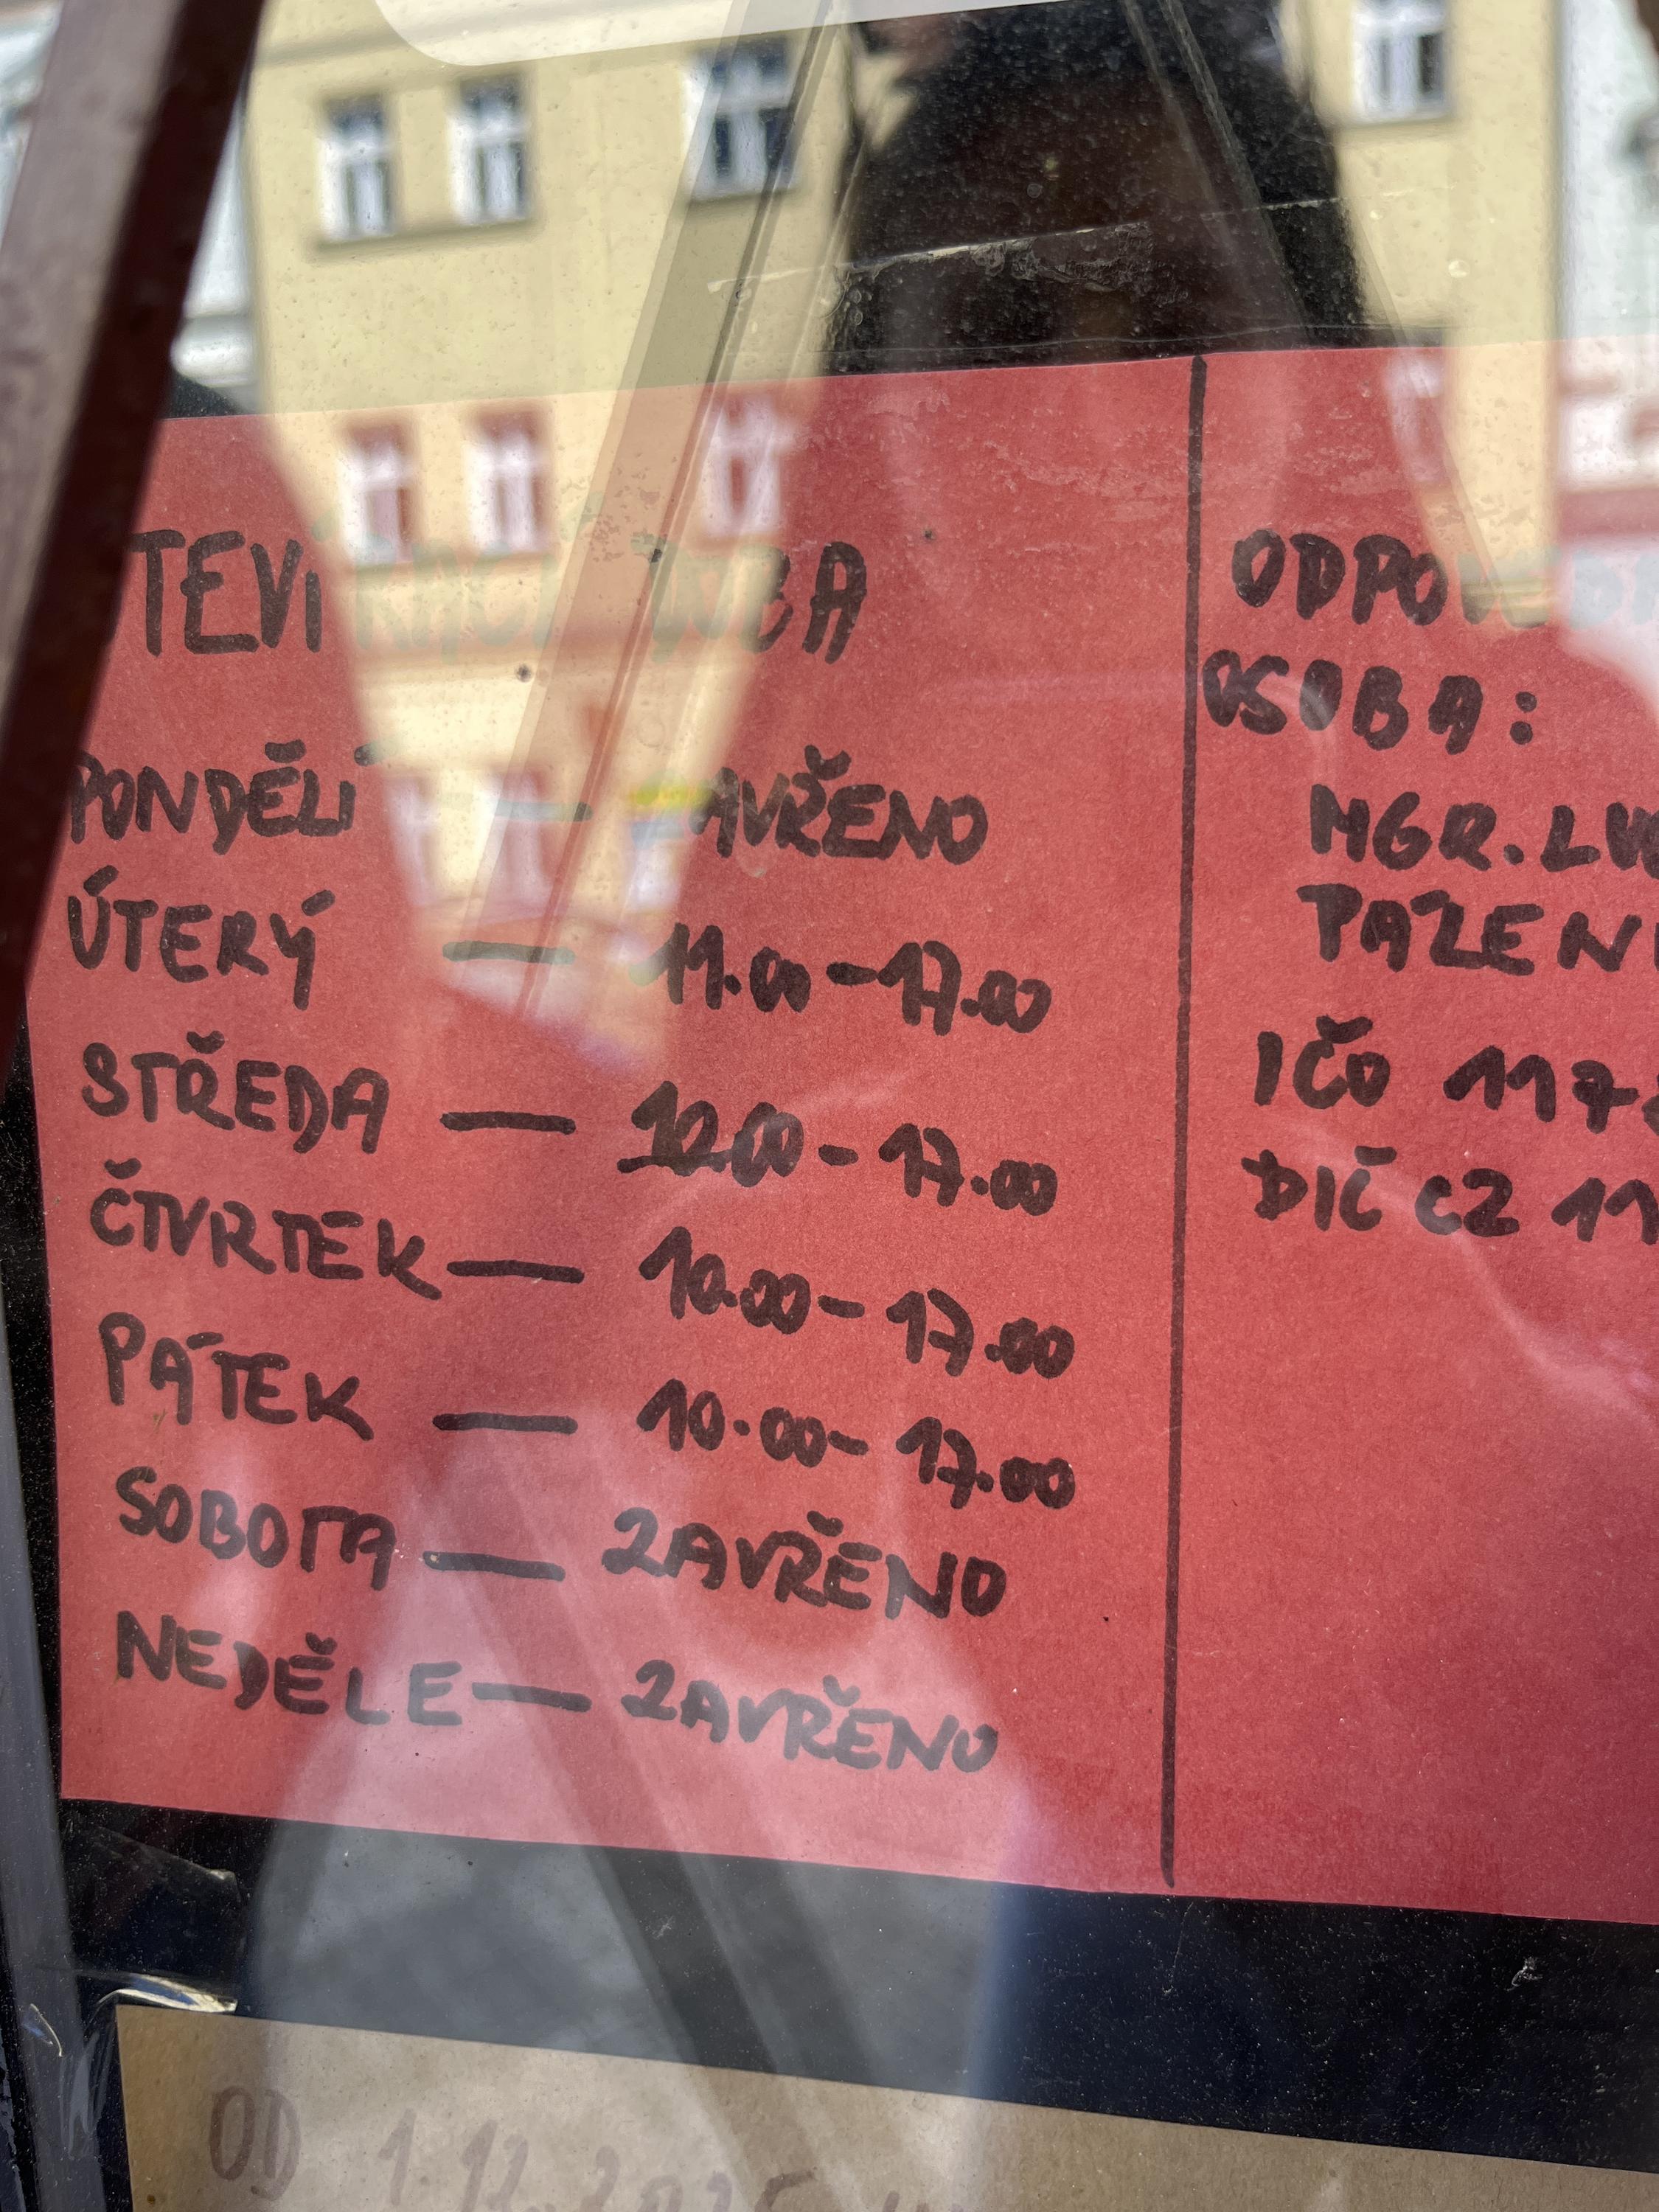 TEVÍRACÍ DOBA
PONDĚLÍ — AVŘENO
ÚTERÝ — 11.00-17.00
STŘEDA — 10.00-17.00
ČTVRTEK — 10.00-17.00
PÁTEK — 10.00-17.00
SOBOTA — ZAVŘENO
NEDĚLE — ZAVŘENO
ODPOV
OSOBA:
MGR. LU
PAZEN
IČO 117
DIČ CZ 11
OD 1.12.2025